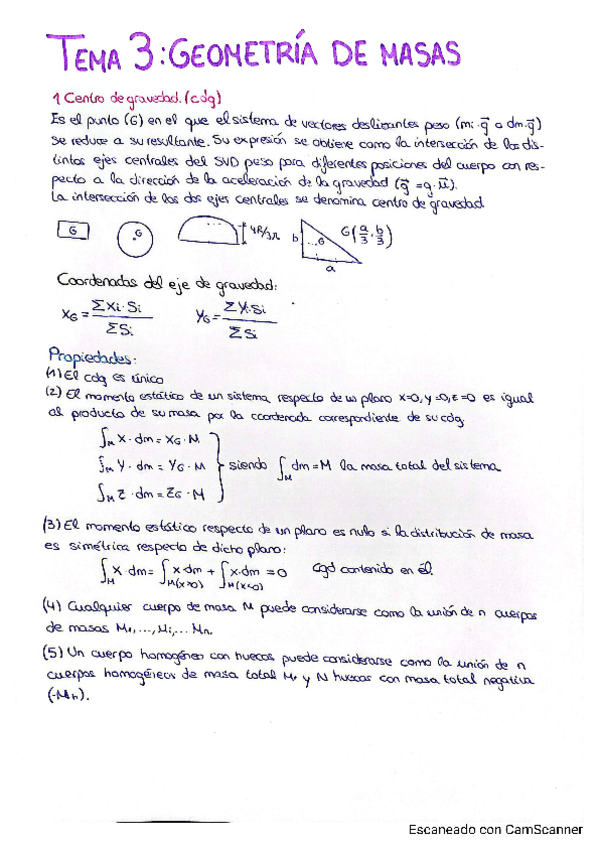 TEMA 3: GEOMETRÍA DE MASAS
1 Centro de gravedad. (cdg)
Es el punto (G) en el que el sistema de vectores deslizantes peso (mi·g⃗ o dm·g⃗)
se reduce a su resultante. Su expresión se obtiene como la intersección de los dis-
tintos ejes centrales del SVD peso para diferentes posiciones del cuerpo con res-
pecto a la dirección de la aceleración de la gravedad (g⃗ = g·u⃗).
La intersección de los dos ejes centrales se denomina centro de gravedad
G G 4R/3π b G a G(a/3, b/3)
Coordenadas del eje de gravedad:
X_G = ΣXi·Si / ΣSi Y_G = ΣYi·Si / ΣSi
Propiedades:
(1) El cdg es único
(2) El momento estático de un sistema respecto de un plano x=0, y=0, z=0 es igual
al producto de su masa por la coordenada correspondiente de su cdg.
∫_M X·dm = X_G·M
∫_M Y·dm = Y_G·M } siendo ∫_M dm = M la masa total del sistema
∫_M Z·dm = Z_G·M
(3) El momento estático respecto de un plano es nulo si la distribución de masa
es simétrica respecto de dicho plano:
∫_M x dm = ∫_M(x>0) x dm + ∫_M(x<0) x·dm = 0 Cgd contenido en él.
(4) Cualquier cuerpo de masa M puede considerarse como la unión de n cuerpos
de masas M₁,...,Mi,... Mn.
(5) Un cuerpo homogéneo con huecos puede considerarse como la unión de n
cuerpos homogéneos de masa total M_r y N huecos con masa total negativa
(-M_h).
Escaneado con CamScanner